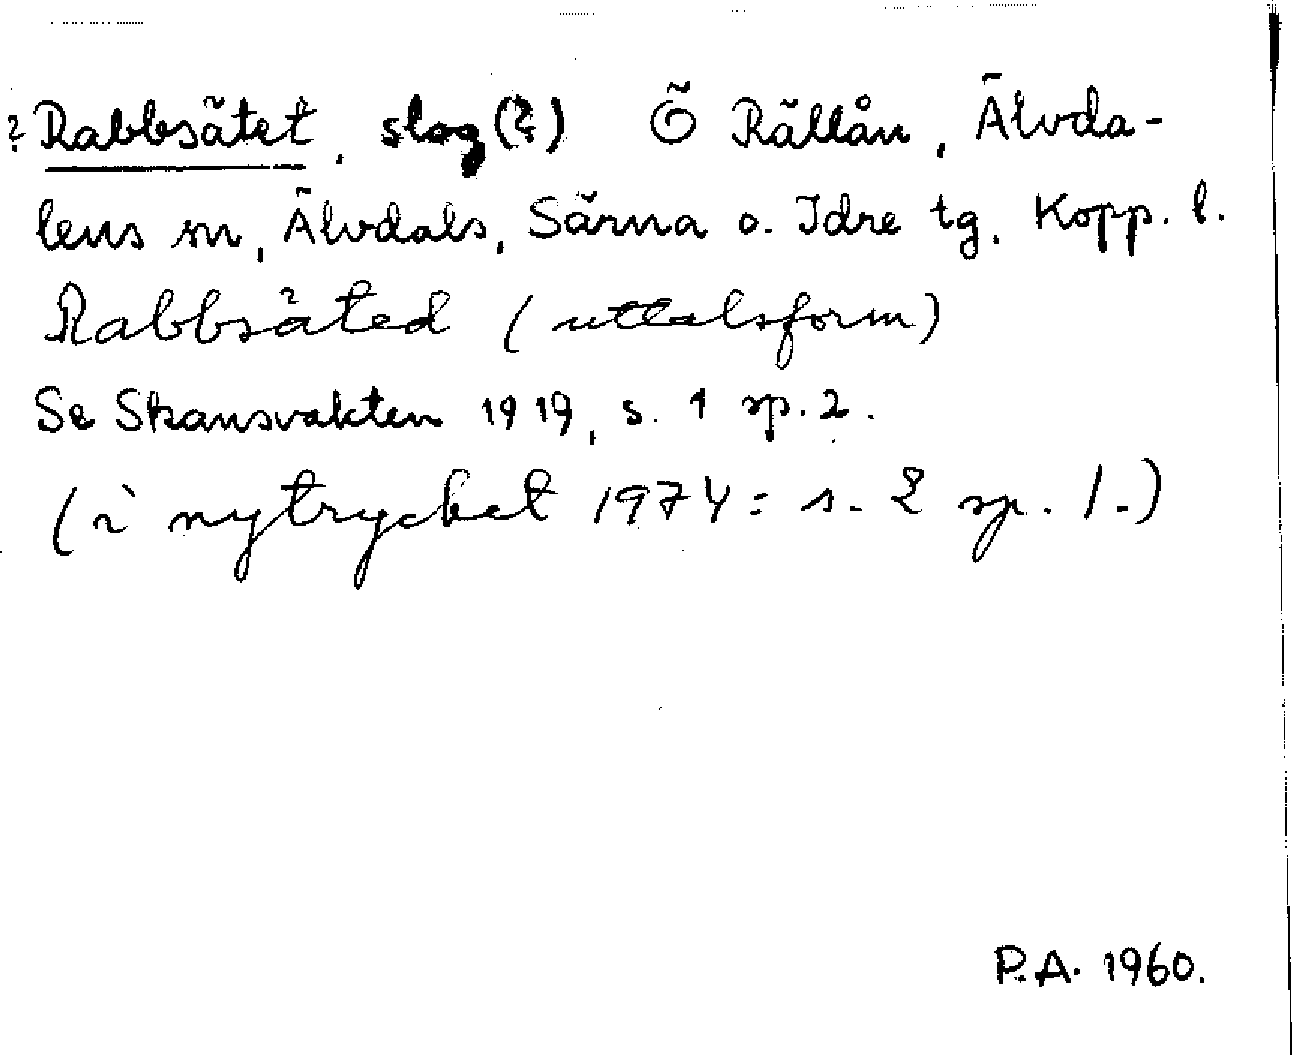 ? Rabbsätet, slog (?) Ö Rällån, Älvda-
lens sn, Älvdals, Särna o. Idre tg, Kopp. l.
Rabbsäted (uttalsform)
Se Skansvakten 1919, s. 1 sp. 2.
(i nytrycket 1974: s. 2 sp. 1.)
P.A. 1960.